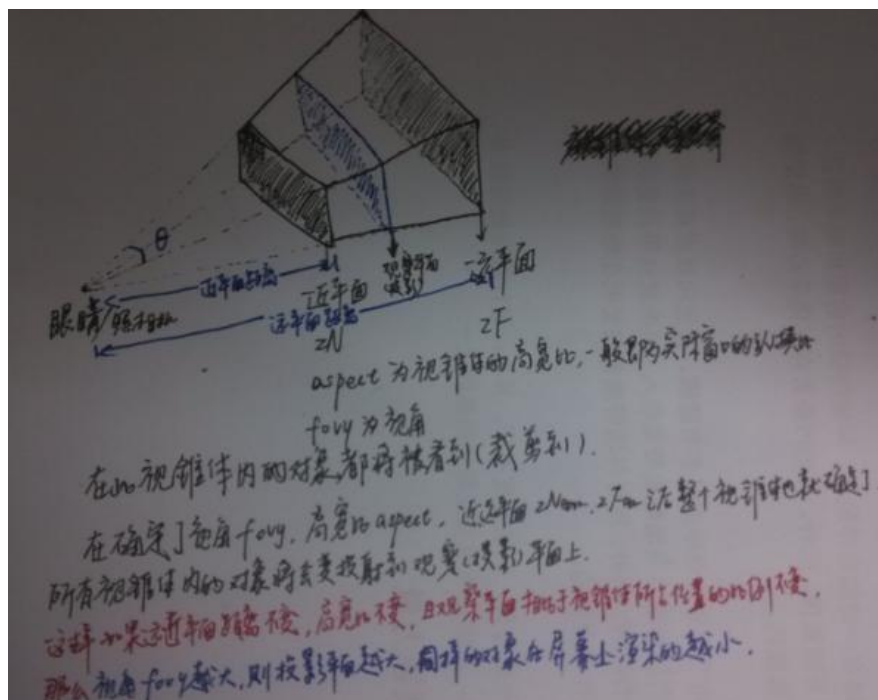 θ
近平面距离
眼睛/照相机
近平面
观察平面
(投影)
远平面
远平面距离
ZN
ZF
aspect 为视锥体的高宽比,一般即为实际窗口的纵横比
fovy 为视角
在此视锥体内的对象都将被看到(裁剪到).
在确定了视角 fovy, 高宽比 aspect, 近远平面 之后整个视锥体也就确定了
所有视锥体内的对象将会变投射到观察(投影)平面上.
这样如果远近平面距离不变,高宽比不变,且观察平面相对于视锥体所占位置的比例不变,
那么视角 fovy 越大,则投影平面越大,同样的对象在屏幕上渲染的越小.